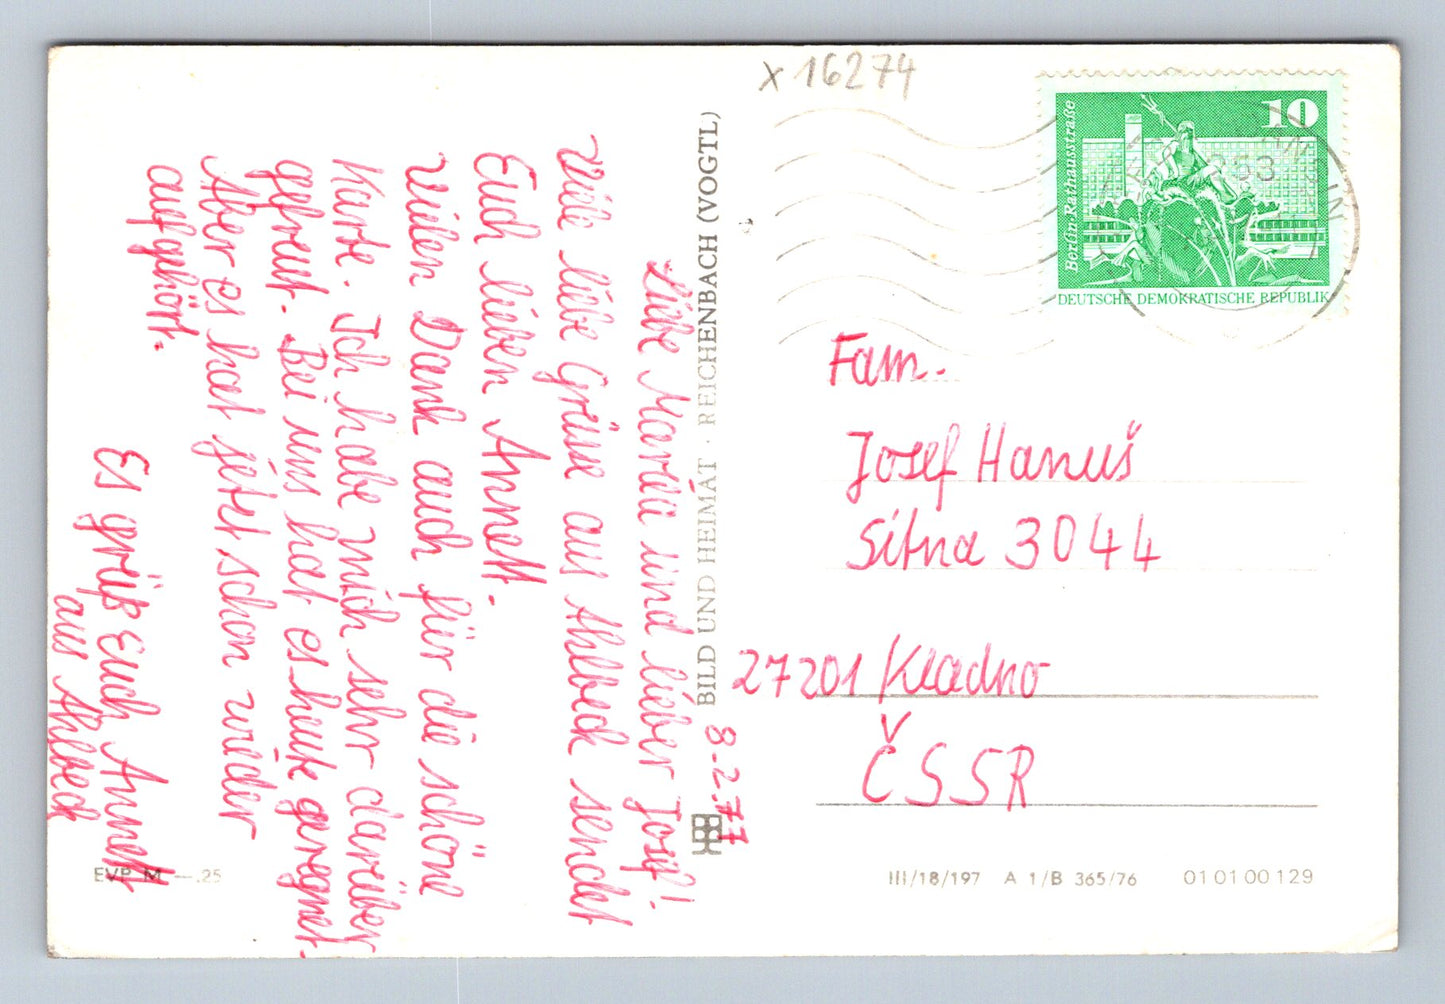 x 16274
10
Berlin·Rathausstraße
DEUTSCHE DEMOKRATISCHE REPUBLIK
253
8.2.77
Liebe Maruša und lieber Josef!
Viele liebe Grüsse aus Ahlbeck sendet
Euch lieben Annett.
Vielen Dank auch für die schöne
Karte. Ich habe mich sehr darüber
gefreut. Bei uns hat es heute geregnet.
Aber es hat jetzt schon wieder
aufgehört.
Es grüßt Euch Annett
aus Ahlbeck
BILD UND HEIMAT · REICHENBACH (VOGTL)
Fam.
Josef Hanuš
Sitna 3044
27201 Kladno
ČSSR
EVP M —.25
III/18/197 A 1/B 365/76 01 01 00 129